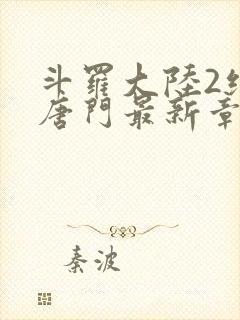 斗羅大陸2絕
唐門最新章
秦波